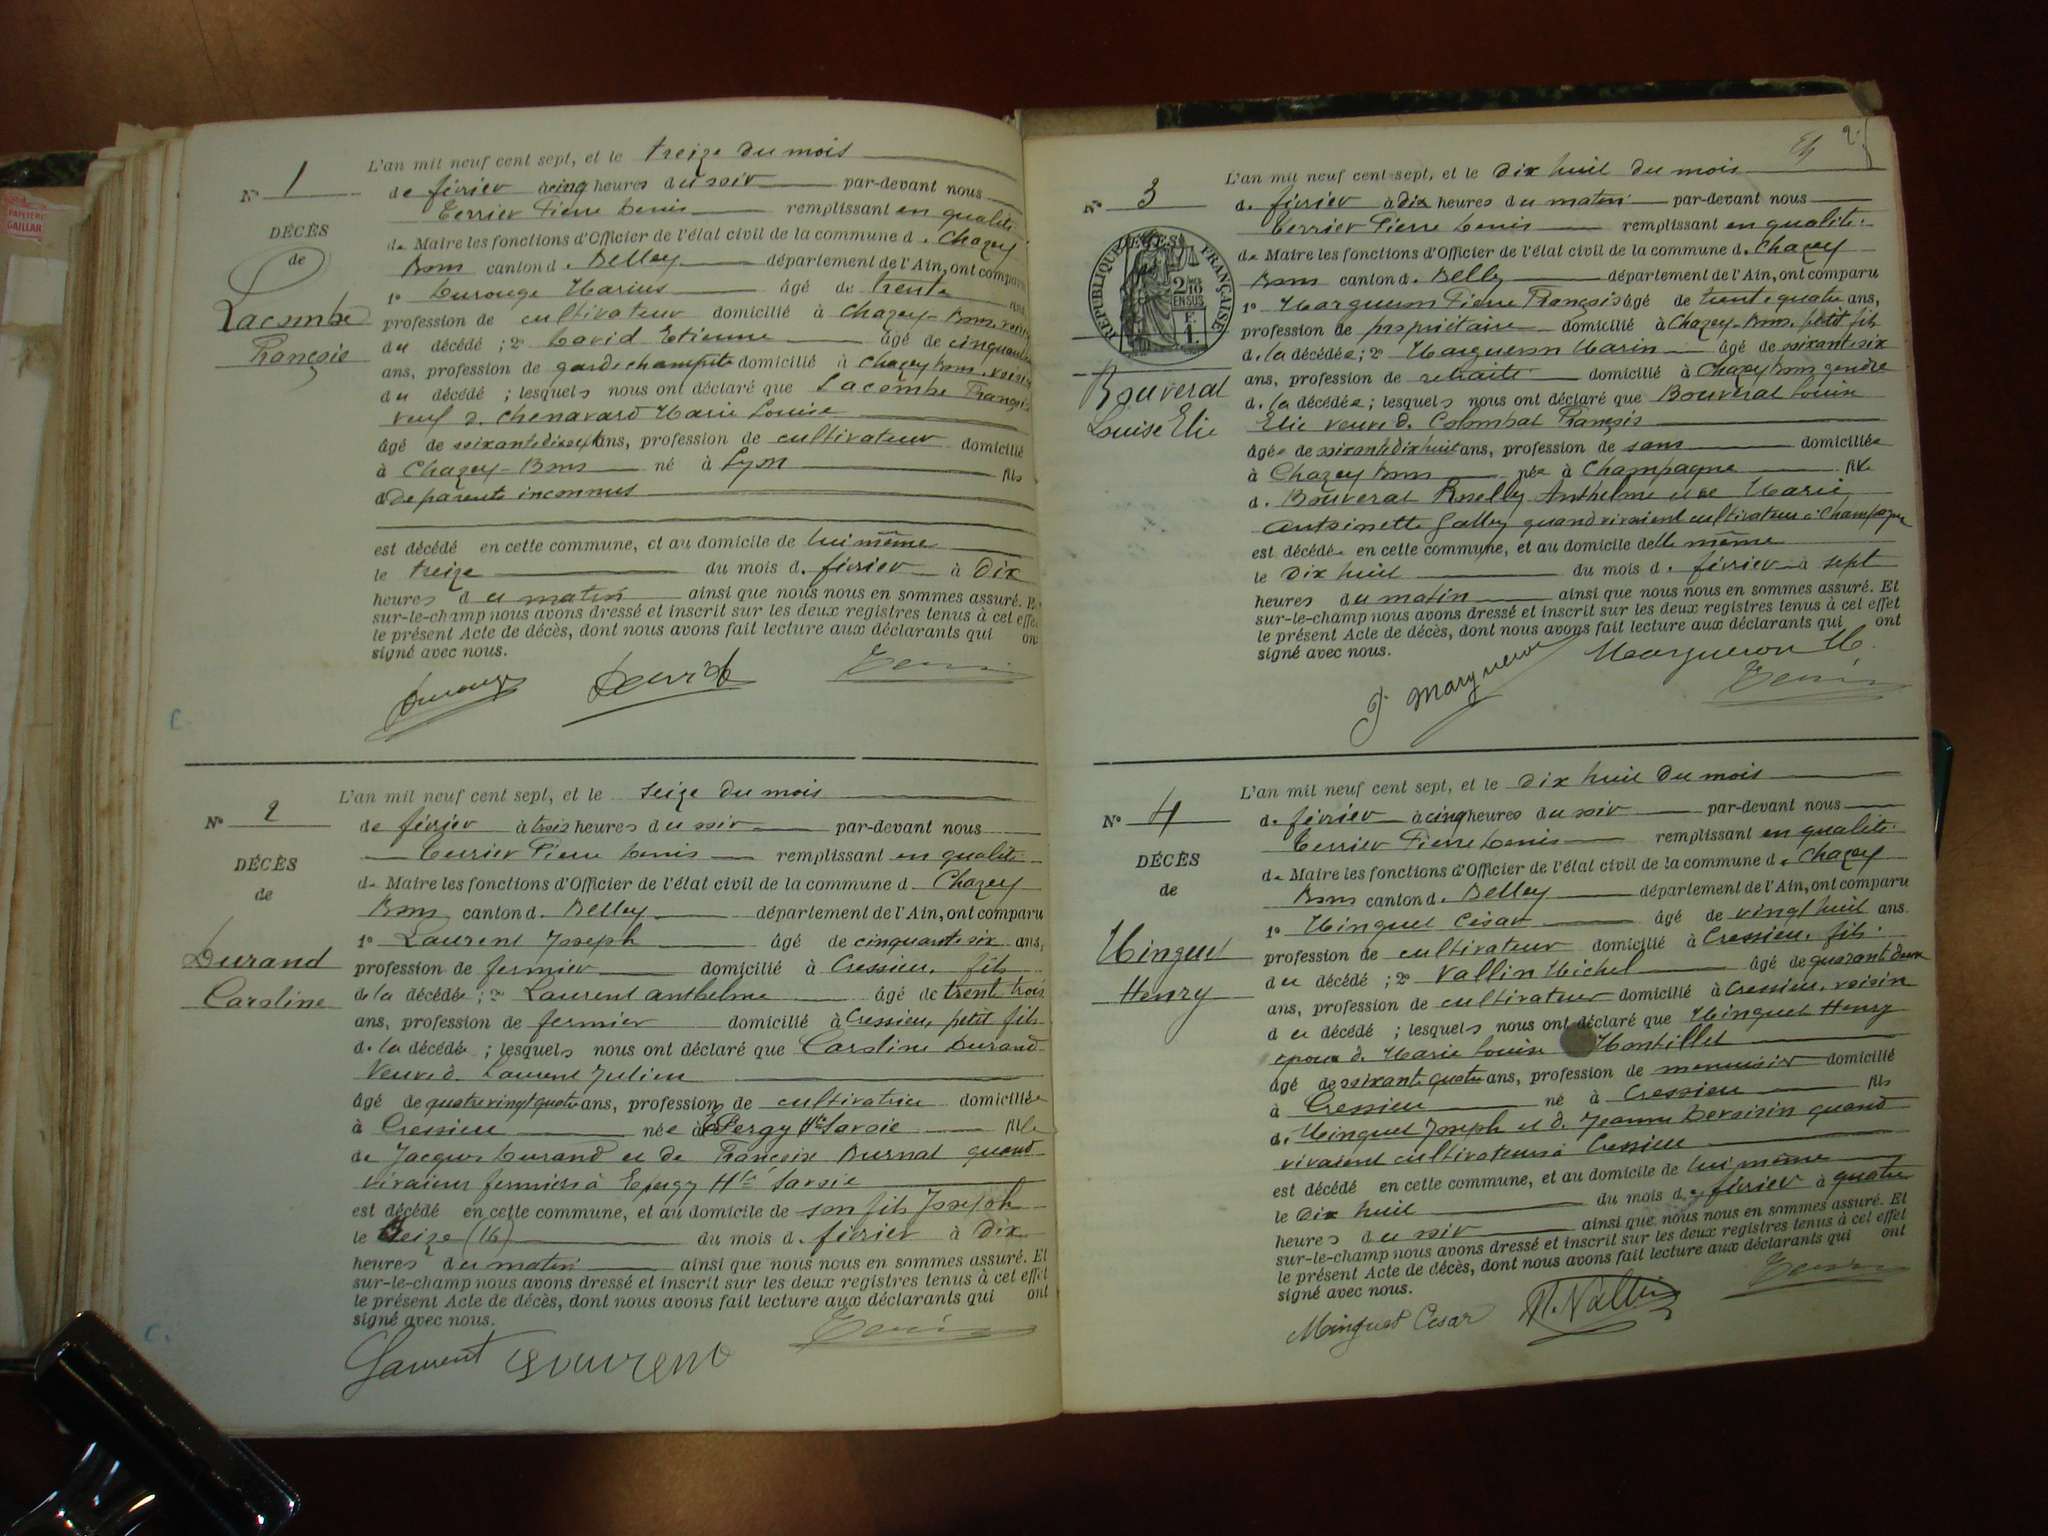 N° 1
DÉCÈS
de
Lacombe
François
L'an mil neuf cent sept, et le treize du mois
de février à cinq heures du soir par-devant nous
Terrier Pierre Denis remplissant en qualité
de Maire les fonctions d'Officier de l'état civil de la commune de Chazey
Bons canton de Belley département de l'Ain, ont comparu
1° Durouge Marius âgé de trente ans,
profession de cultivateur domicilié à Chazey-Bons, voisin
du décédé ; 2° David Etienne âgé de cinquante
ans, profession de garde champêtre domicilié à Chazey Bons, voisin
du décédé ; lesquels nous ont déclaré que Lacombe François
veuf de Chenavard Marie Louise
âgé de soixante dix sept ans, profession de cultivateur domicilié
à Chazey-Bons né à Lyon fils
de parents inconnus
est décédé en cette commune, et au domicile de lui même
le treize du mois de février à dix
heures du matin ainsi que nous nous en sommes assuré. Et
sur-le-champ nous avons dressé et inscrit sur les deux registres tenus à cet effet
le présent Acte de décès, dont nous avons fait lecture aux déclarants qui ont
signé avec nous.
Durouge David Terrier
N° 2
DÉCÈS
de
Durand
Caroline
L'an mil neuf cent sept, et le seize du mois
de février à trois heures du soir par-devant nous
Terrier Pierre Denis remplissant en qualité
de Maire les fonctions d'Officier de l'état civil de la commune de Chazey
Bons canton de Belley département de l'Ain, ont comparu
1° Laurent Joseph âgé de cinquante six ans,
profession de fermier domicilié à Cressieu, fils
de la décédée ; 2° Laurent Anthelme âgé de trente trois
ans, profession de fermier domicilié à Cressieu, petit fils
de la décédée ; lesquels nous ont déclaré que Caroline Durand
Veuve de Laurent Julien
âgé de quatre vingt quatre ans, profession de cultivatrice domiciliée
à Cressieu née à Epergy Hte Savoie fille
de Jacques Durand et de Françoise Burnat quand
vivaient fermiers à Epergy Hte Savoie
est décédé en cette commune, et au domicile de son fils Joseph
le Seize (16) du mois de février à dix
heures du matin ainsi que nous nous en sommes assuré. Et
sur-le-champ nous avons dressé et inscrit sur les deux registres tenus à cet effet
le présent Acte de décès, dont nous avons fait lecture aux déclarants qui ont
signé avec nous.
Laurent Laurent Terrier
2
N° 3
RÉPUBLIQUE FRANÇAISE
2/10 EN SUS
F. 1.
Bouverat
Louise Elie
L'an mil neuf cent sept, et le dix huit du mois
de février à dix heures du matin par-devant nous
Terrier Pierre Denis remplissant en qualité
de Maire les fonctions d'Officier de l'état civil de la commune de Chazey
Bons canton de Belley département de l'Ain, ont comparu
1° Margueron Pierre François âgé de trente quatre ans,
profession de propriétaire domicilié à Chazey-Bons, petit fils
de la décédée ; 2° Margueron Marin âgé de soixante six
ans, profession de retraité domicilié à Chazey Bons gendre
de la décédée ; lesquels nous ont déclaré que Bouverat Louise
Elie veuve de Colombat François
âgée de soixante dix huit ans, profession de sans domiciliée
à Chazey Bons née à Champagne fille
de Bouverat Roselly Anthelme et de Marie
Antoinette Galley quand vivaient cultivateurs à Champagne
est décédée en cette commune, et au domicile d'elle même
le dix huit du mois de février à sept
heures du matin ainsi que nous nous en sommes assuré. Et
sur-le-champ nous avons dressé et inscrit sur les deux registres tenus à cet effet
le présent Acte de décès, dont nous avons fait lecture aux déclarants qui ont
signé avec nous.
Margueron Margueron M. Terrier
N° 4
DÉCÈS
de
Minguet
Henry
L'an mil neuf cent sept, et le dix huit du mois
de février à cinq heures du soir par-devant nous
Terrier Pierre Denis remplissant en qualité
de Maire les fonctions d'Officier de l'état civil de la commune de Chazey
Bons canton de Belley département de l'Ain, ont comparu
1° Minguet César âgé de vingt huit ans.
profession de cultivateur domicilié à Cressieu, fils
du décédé ; 2° Vallin Michel âgé de quarante deux
ans, profession de cultivateur domicilié à Cressieu, voisin
du décédé ; lesquels nous ont déclaré que Minguet Henry
époux de Marie Louise Montillet
âgé de soixante quatre ans, profession de menuisier domicilié
à Cressieu né à Cressieu fils
de Minguet Joseph et de Jeanne Dervisin quand
vivaient cultivateurs à Cressieu
est décédé en cette commune, et au domicile de lui même
le dix huit du mois de février à quatre
heures du soir ainsi que nous nous en sommes assuré. Et
sur-le-champ nous avons dressé et inscrit sur les deux registres tenus à cet effet
le présent Acte de décès, dont nous avons fait lecture aux déclarants qui ont
signé avec nous.
Minguet Cesar M. Vallin Terrier